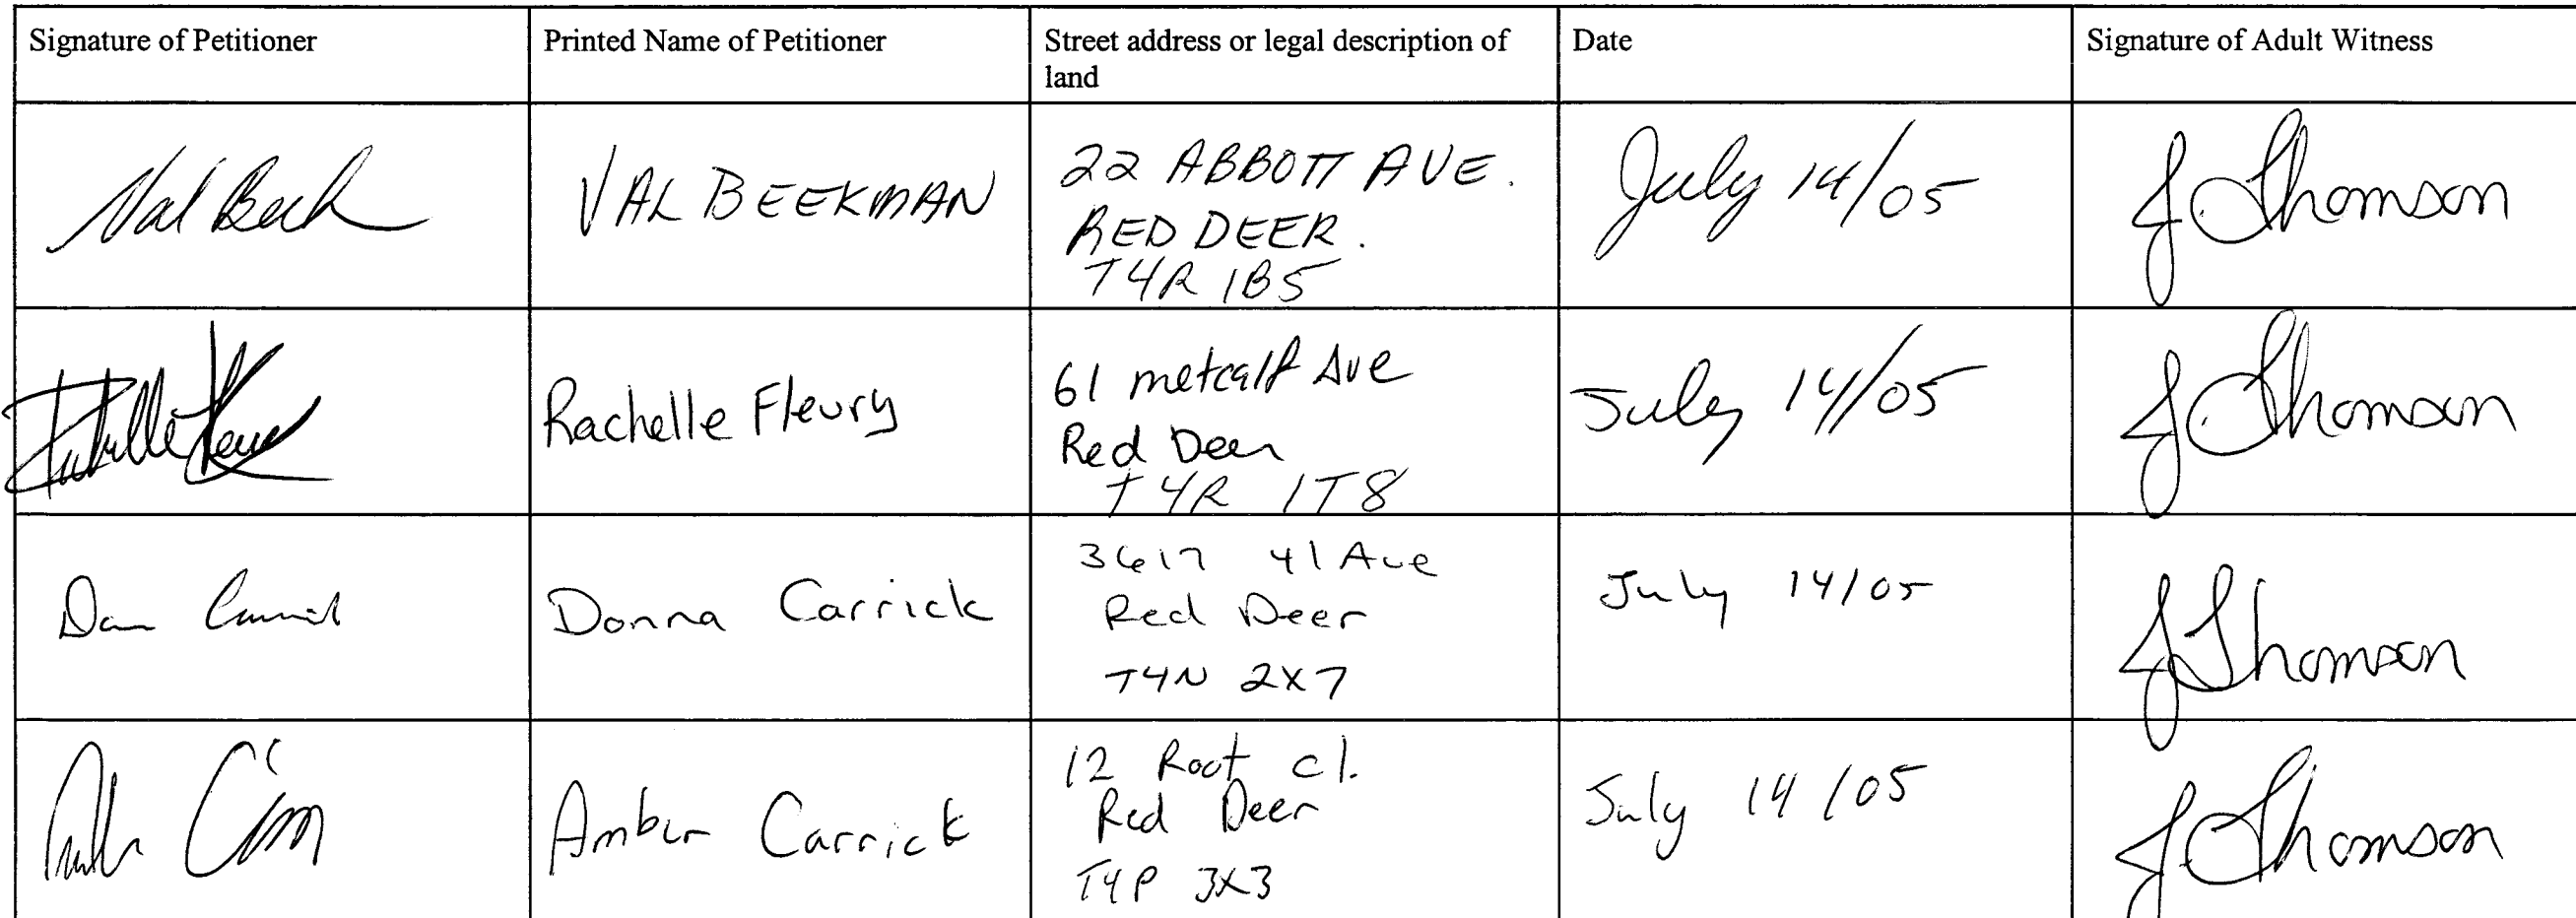 Signature of Petitioner
Printed Name of Petitioner
Street address or legal description of
land
Date
Signature of Adult Witness
Val Beek
VAL BEEKMAN
22 ABBOTT AVE.
RED DEER.
T4R 1B5
July 14/05
J Thomson
Rachelle Fleury
61 metcalf Ave
Red Deer
T4R 1T8
July 14/05
J Thomson
Donna Carrick
3617 41 Ave
Red Deer
T4N 2X7
July 14/05
J Thomson
Amber Carrick
12 Root cl.
Red Deer
T4P 3X3
July 14/05
J Thomson